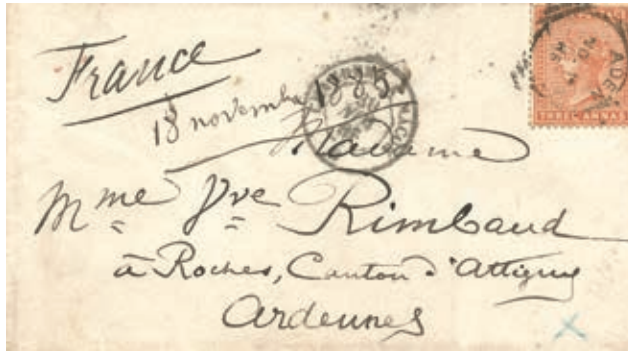 France
18 novembre 1885
Madame
Mme Vve Rimbaud
à Roches, Canton d'Attigny
Ardennes
ADEN
THREE ANNAS